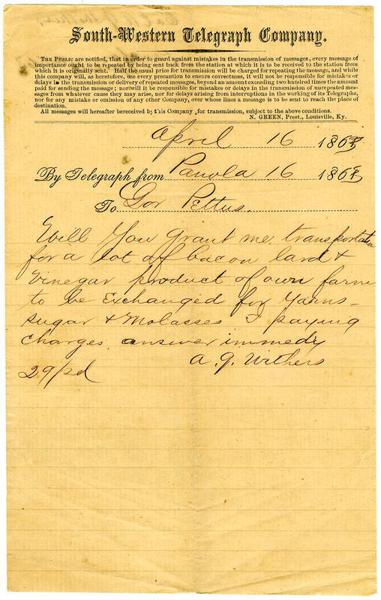 South-Western Telegraph Company.
THE PUBLIC are notified, that in order to guard against mistakes in the transmission of messages, every message of
importance ought to be repeated by being sent back from the station at which it is to be received to the station from
which it is originally sent. Half the usual price for transmission will be charged for repeating the message, and while
this company will, as heretofore, use every precaution to ensure correctness, it will not be responsible for mistakes or
delays in the transmission or delivery of repeated messages, beyond an amount exceeding five hundred times the amount
paid for sending the message; nor will it be responsible for mistakes or delays in the transmission of unrepeated messages
from whatever cause they may arise, nor for delays arising from interruptions in the working of its Telegraphs,
nor for any mistake or omission of any other Company, over whose lines a message is to be sent to reach the place of
destination.
All messages will hereafter be received by this Company for transmission, subject to the above conditions.
N. GREEN, Prest., Louisville, Ky.
April 16 1863
By Telegraph from Panola 16 1863
To Gov Pettus.
Will You grant me transportation
for a lot of bacon lard &
Vinegar product of own farm
to be Exchanged for Yarns
Sugar & Molasses I paying
charges answer immedy
A. J. Withers
29/pd